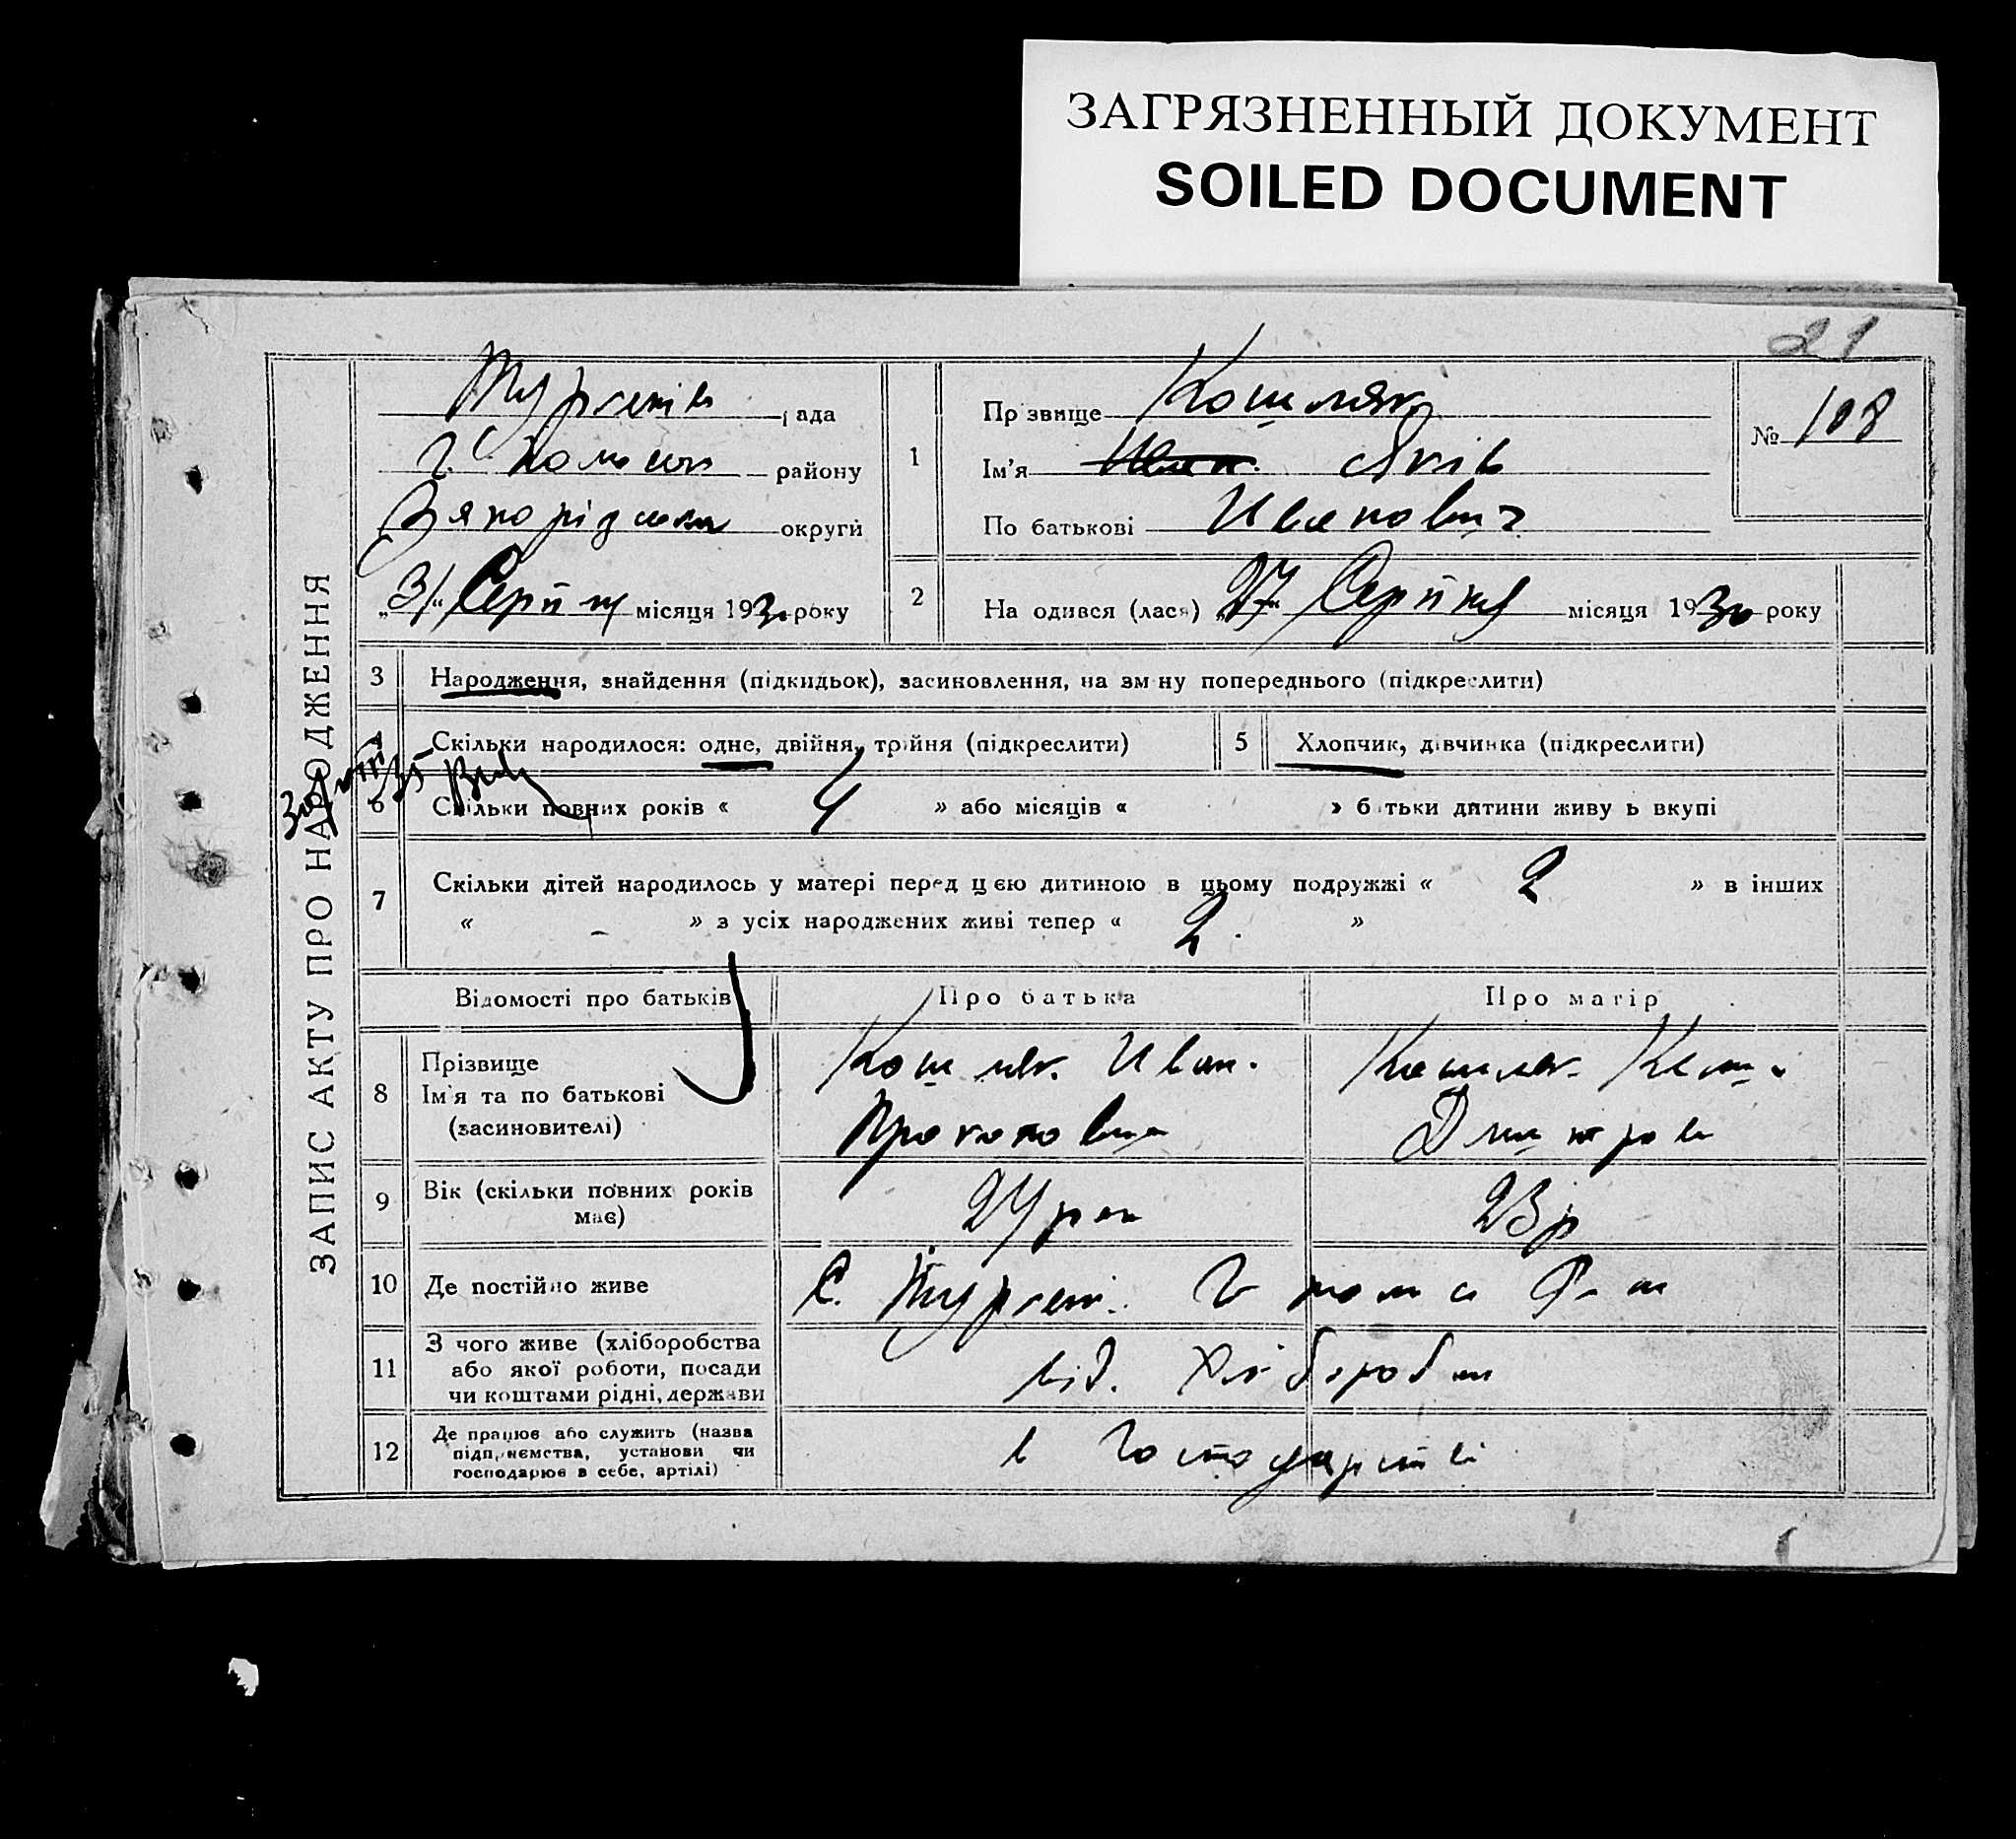 ЗАГРЯЗНЕННЫЙ ДОКУМЕНТ
SOILED DOCUMENT
21
ЗАПИС АКТУ ПРО НАРОДЖЕННЯ
рада
району
округи
"31" Серпня місяця 1930 року
1
Прізвище Кошляк
Ім'я Яків
По батькові Иванович
№ 108
2
Народився (лася) "27" Серпня місяця 1930 року
3 Народження, знайдення (підкидьок), засиновлення, на зміну попереднього (підкреслити)
Скільки народилося: одне, двійня, трійня (підкреслити)
5 Хлопчик, дівчинка (підкреслити)
6 Скільки повних років « 4 » або місяців « » батьки дитини живуть вкупі
7 Скільки дітей народилось у матері перед цією дитиною в цьому подружжі « 2 » в інших
« – » з усіх народжених живі тепер « 2. »
Відомості про батьків Про батька Про матір
8 Прізвище
Ім'я та по батькові
(засиновителі)
Кошляк. Иван.
Прокопович
Кошляк.
Дмитров
9 Вік (скільки повних років
має)
24 рок
23 р
10 Де постійно живе С.
11 З чого живе (хліборобства
або якої роботи, посади
чи коштами рідні, держави
від. Хліборобст
12 Де працює або служить (назва
підприємства, установи чи
господарює в себе, артілі)
в Господарстві